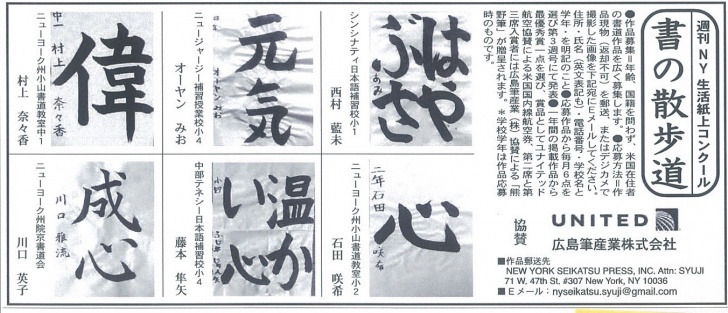 週刊NY生活紙上コンクール
書の散歩道
●作品募集=年齢、国籍を問わず、米国在住者
の書道作品を広く募集します。●応募方法=作
品現物(返却不可)を郵送、またはデジカメで
撮影した画像を下記宛にEメールしてください。
住所・氏名(英文表記も)・電話番号・学校名と
学年・を明記のこと●応募作品から毎月6点を
選び第3週号にて発表●一年間の掲載作品から
最優秀賞一点を選び、賞品としてユナイテッド
航空協賛による米国国内線航空券、第二席と第
三席入賞者には広島筆産業(株)協賛による「熊
野筆」が贈呈されます。*学校学年は作品応募
時のものです。
協賛
UNITED
広島筆産業株式会社
■作品郵送先
NEW YORK SEIKATSU PRESS, INC. Attn: SYUJI
71 W. 47th St. #307 New York, NY 10036
■Eメール:nyseikatsu.syuji@gmail.com
はや
ぶさ
あみ
シンシナティ日本語補習校小1
西村 藍未
元気
オーヤン みお
ニュージャージー補習授業校小4
オーヤン みお
偉
中一 村上 奈々香
ニューヨーク州小山書道教室中1
村上 奈々香
心
二年石田 咲希
ニューヨーク州小山書道教室小2
石田 咲希
温か
い心
中部テネシー日本語補習校小4
藤本 隼矢
成心
川口雅流
ニューヨーク州院京書道会
川口 英子